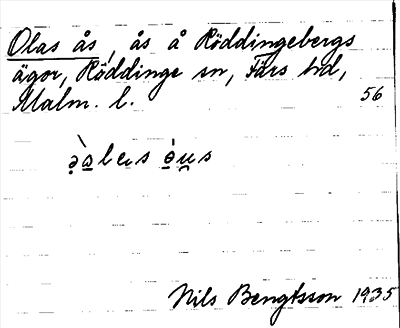 Olas ås, ås å Röddingebergs
ägor, Röddinge sn, Färs hd,
Malm. l. 56
Nils Bengtsson 1935